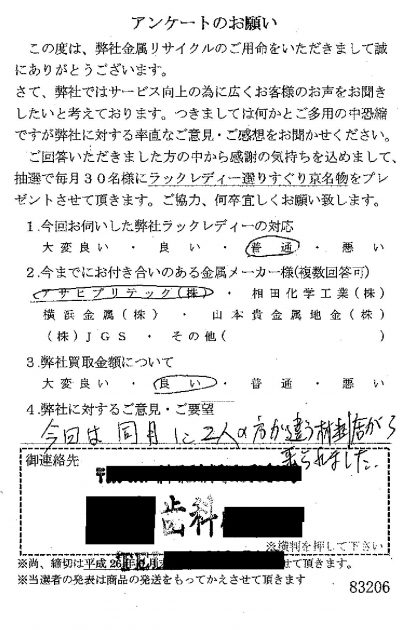 アンケートのお願い
この度は、弊社金属リサイクルのご用命をいただきまして誠
にありがとうございます。
さて、弊社ではサービス向上の為に広くお客様のお声をお聞き
したいと考えております。つきましては何かとご多用の中恐縮
ですが弊社に対する率直なご意見・ご感想をお聞かせください。
ご回答いただきました方の中から感謝の気持ちを込めまして、
抽選で毎月30名様にラックレディー選りすぐり京名物をプレ
ゼントさせて頂きます。ご協力、何卒宜しくお願い致します。
1.今回お伺いした弊社ラックレディーの対応
大変良い ・ 良い ・ 普通 ・ 悪い
2.今までにお付き合いのある金属メーカー様(複数回答可)
アサヒプリテック(株) ・ 相田化学工業(株)
横浜金属(株) ・ 山本貴金属地金(株)
(株)JGS ・ その他( )
3.弊社買取金額について
大変良い ・ 良い ・ 普通 ・ 悪い
4.弊社に対するご意見・ご要望
今回は同月に2人の方が違う材料店から
来られました.
御連絡先
歯科
※横判を押して下さい
※尚、締切は平成26年 せて頂きます。
※当選者の発表は商品の発送をもってかえさせて頂きます
83206